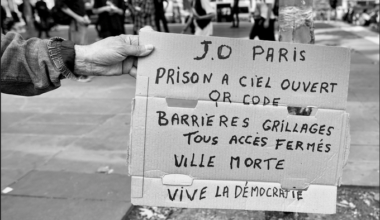 J.O PARIS
PRISON A CIEL OUVERT
QR CODE
BARRIÈRES GRILLAGES
TOUS ACCÈS FERMÉS
VILLE MORTE
VIVE LA DÉMOCRATIE